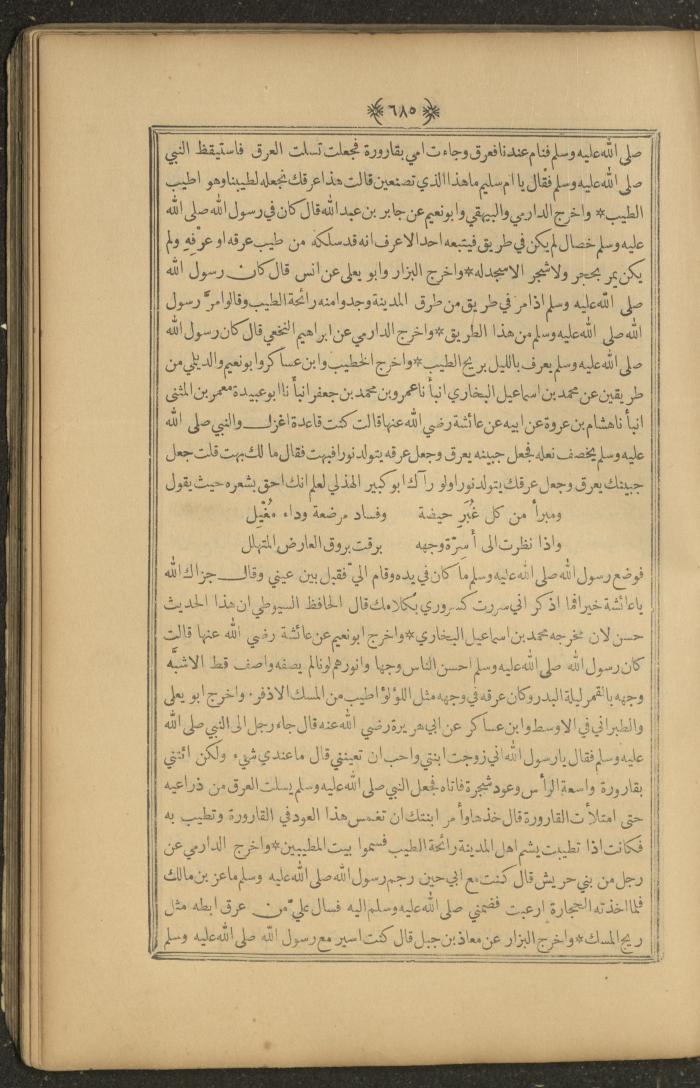 ٦٨٥
صلى الله عليه وسلم فنام عندنا فعرق وجاءت امي بقارورة فجعلت تسلت العرق فاستيقظ النبي
صلى الله عليه وسلم فقال يا ام سليم ما هذا الذي تصنعين قالت هذا عرقك نجعله لطيبنا وهو اطيب
الطيب * واخرج الدارمي والبيهقي وابو نعيم عن جابر بن عبد الله قال كان في رسول الله صلى الله
عليه وسلم خصال لم يكن في طريق فيتبعه احد الا عرف انه قد سلكه من طيب عرقه او عَرْفِهِ ولم
يكن يمر بحجر ولا شجر الا سجد له * واخرج البزار وابو يعلى عن انس قال كان رسول الله
صلى الله عليه وسلم اذا مر في طريق من طرق المدينة وجدوا منه رائحة الطيب وقالوا مرَّ رسول
الله صلى الله عليه وسلم من هذا الطريق * واخرج الدارمي عن ابراهيم النخعي قال كان رسول الله
صلى الله عليه وسلم يعرف بالليل بريح الطيب * واخرج الخطيب وابن عساكر وابو نعيم والديلي من
طريقين عن محمد بن اسماعيل البخاري انبأنا عمرو بن محمد بن جعفر انبأنا ابو عبيدة معمر بن المثنى
انبأنا هشام بن عروة عن ابيه عن عائشة رضي الله عنها قالت كنت قاعدة اغزل والنبي صلى الله
عليه وسلم يخصف نعله فجعل جبينه يعرق وجعل عرقه يتولد نورا فبهت فقال ما لك بهت قلت جعل
جبينك يعرق وجعل عرقك يتولد نورا ولو رآك ابو كبير الهذلي لعلم انك احق بشعره حيث يقول
ومبرأ من كل غُبَّرِ حيضة وفساد مرضعة وداء مُغْيِل
واذا نظرت الى أَسِرّة وجهه برقت بروق العارض المتهلل
فوضع رسول الله صلى الله عليه وسلم ما كان في يده وقام اليّ فقبل بين عيني وقال جزاك الله
يا عائشة خيرا فما اذكر اني سررت كسروري بكلامك قال الحافظ السيوطي ان هذا الحديث
حسن لان مخرجه محمد بن اسماعيل البخاري * واخرج ابو نعيم عن عائشة رضي الله عنها قالت
كان رسول الله صلى الله عليه وسلم احسن الناس وجها وانورهم لونا لم يصفه واصف قط الا شبَّه
وجهه بالقمر ليلة البدر وكان عرقه في وجهه مثل اللؤلؤ اطيب من المسك الاذفر. واخرج ابو يعلى
والطبراني في الاوسط وابن عساكر عن ابي هريرة رضي الله عنه قال جاء رجل الى النبي صلى الله
عليه وسلم فقال يا رسول الله اني زوجت ابنتي واحب ان تعينني قال ما عندي شيء ولكن ائتني
بقارورة واسعة الرأس وعود شجرة فاتاه فجعل النبي صلى الله عليه وسلم يسلت العرق من ذراعيه
حتى امتلأت القارورة قال خذها وأمر ابنتك ان تغمس هذا العود في القارورة وتطيب به
فكانت اذا تطيبت يشم اهل المدينة رائحة الطيب فسموا بيت المطيبين * واخرج الدارمي عن
رجل من بني حريش قال كنت مع ابي حين رجم رسول الله صلى الله عليه وسلم ماعز بن مالك
فلما اخذته الحجارة ارعبت فضمني صلى الله عليه وسلم اليه فسال عليّ من عرق ابطه مثل
ريح المسك * واخرج البزار عن معاذ بن جبل قال كنت اسير مع رسول الله صلى الله عليه وسلم